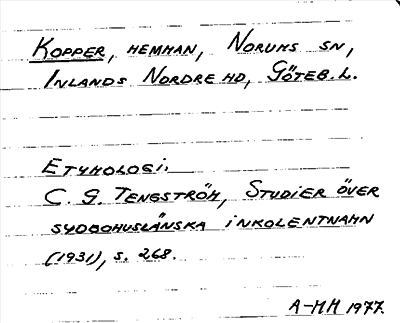 KOPPER, HEMMAN, NORUMS SN,
INLANDS NORDRE HD, GÖTEB. L.
ETYMOLOGI.
C. G. TENGSTRÖM, STUDIER ÖVER
SYDBOHUSLÄNSKA INKOLENTNAMN
(1931), S. 268.
A-MH 1977.